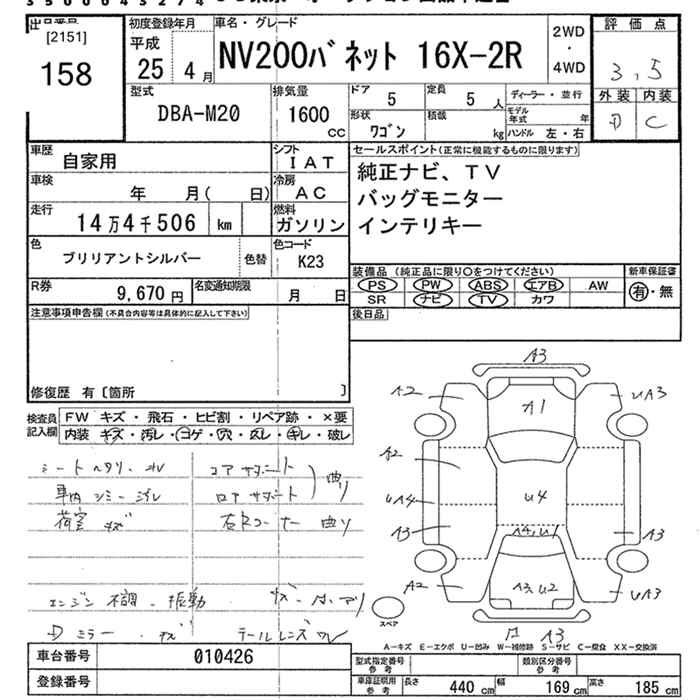 35000432 74
出品番号
[2151]
158
初度登録年月
平成
25 4月
車名・グレード
NV200バネット 16X-2R
2WD
・
4WD
評価点
3.5
外装 内装
D C
型式
DBA-M20
排気量
1600
CC
ドア
5
定員
5 人
形状
ワゴン
積載
kg
ディーラー・並行
モデル年式 年
ハンドル 左・右
車歴
自家用
シフト
IAT
車検
年 月( 日)
冷房
AC
走行
14万4千506 km
燃料
ガソリン
色
ブリリアントシルバー
色替
色コード
K23
R券
9,670 円
名変通知期限
月 日
セールスポイント(正常に機能するものに限ります)
純正ナビ、TV
バッグモニター
インテリキー
装備品 (純正品に限り○をつけてください)
PS PW ABS エアB AW
SR ナビ TV カワ
新車保証書
有・無
後日品
注意事項申告欄(不具合内容等は具体的に記入して下さい)
修復歴 有〔箇所 〕
検査員
記入欄
FW キズ・飛石・ヒビ割・リペア跡・×要
内装 キズ・汚レ・コゲ・穴・スレ・キレ・破レ
コアサポート
ロアサポート
曲り
荷室 キズ
曲り
エンジン 不調・振動
Dミラー・キズ
テールレンズ
A3
A2
UA3
A1
A2
UA4
U4
A3
A3
A4,U1
A2
A3,U2
UA3
A3
スペア
A-キズ E-エクボ U-凹み W-補修跡 S-サビ C-腐食 XX-交換済
車台番号
010426
登録番号
型式指定番号
参考
類別区分番号
参考
車庫証明用
参考
長さ 440 cm 幅 169 cm 高さ 185 cm